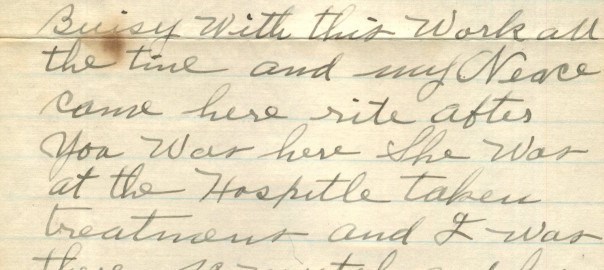 Buisy With this Work all
the time and my Neace
came here rite after
You Was here She Was
at the Hospitle taken
treatment and I was
there so much and